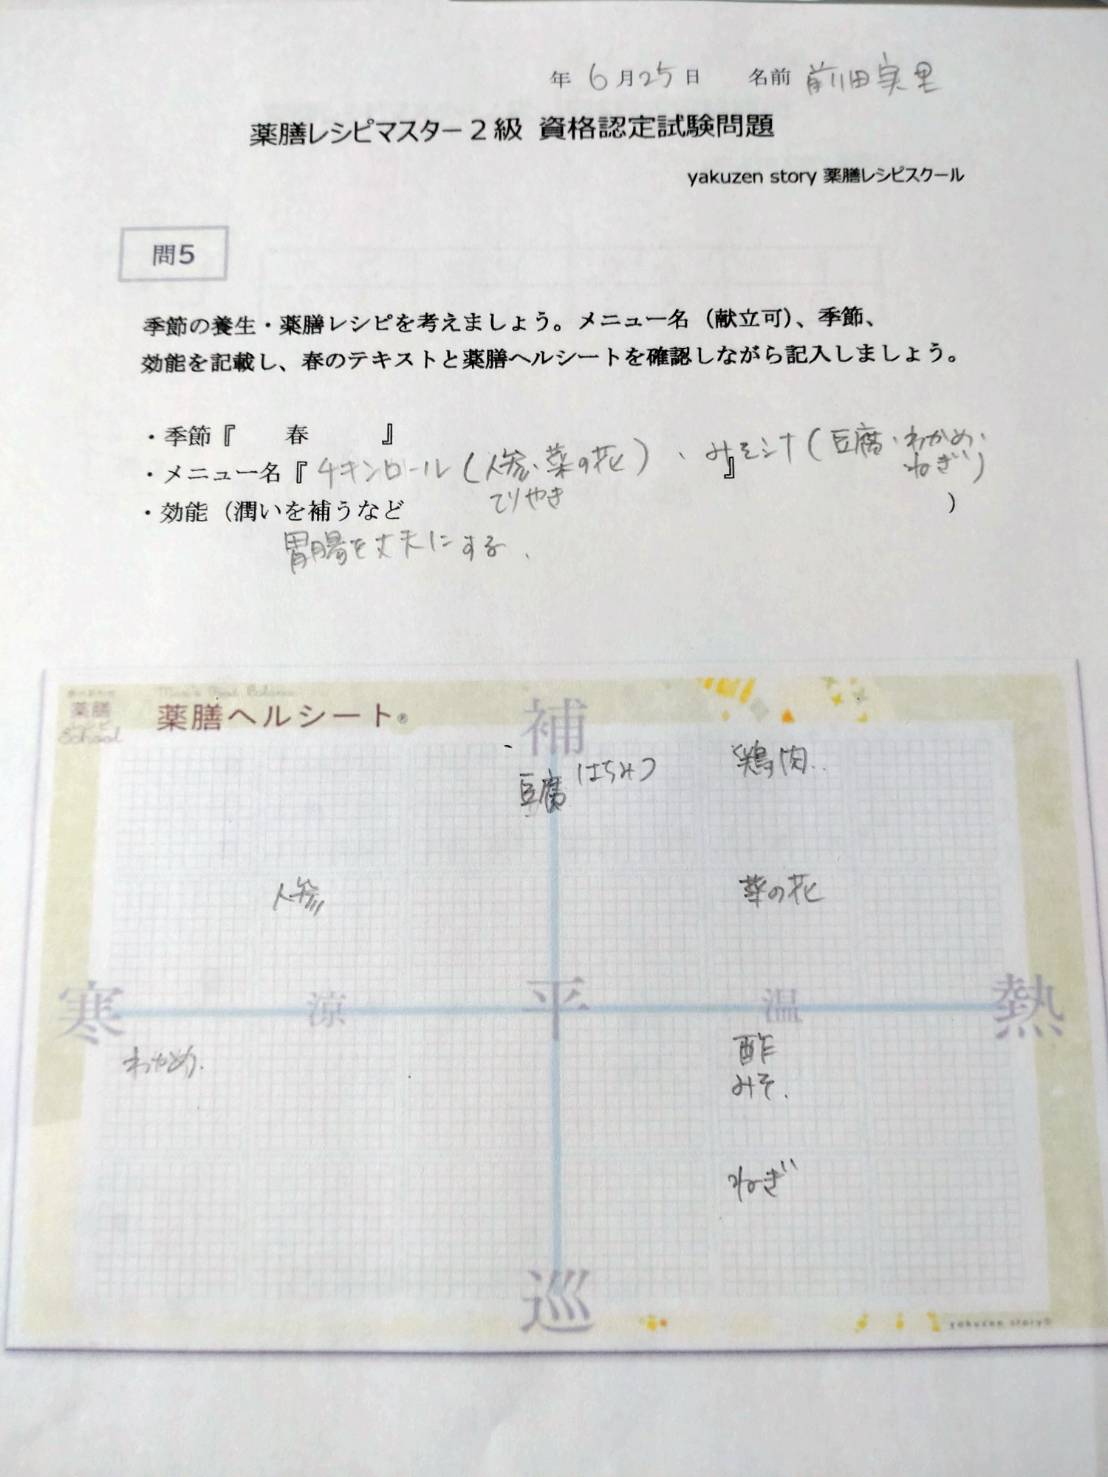 年 6月25日 名前 前田実里
薬膳レシピマスター2級 資格認定試験問題
yakuzen story 薬膳レシピスクール
問5
季節の養生・薬膳レシピを考えましょう。メニュー名（献立可）、季節、
効能を記載し、春のテキストと薬膳ヘルシートを確認しながら記入しましょう。
・季節『 春 』
・メニュー名『チキンロール(人参・菜の花)、みそシナ(豆腐・わかめ・ねぎ)』
てりやき
・効能（潤いを補うなど ）
胃腸を丈夫にする、
薬膳
School
薬膳ヘルシート®
補
豆腐 はちみつ 鶏肉
人参 菜の花
寒 涼 平 温 熱
わかめ 酢
みそ
ねぎ
巡
yakuzen story©